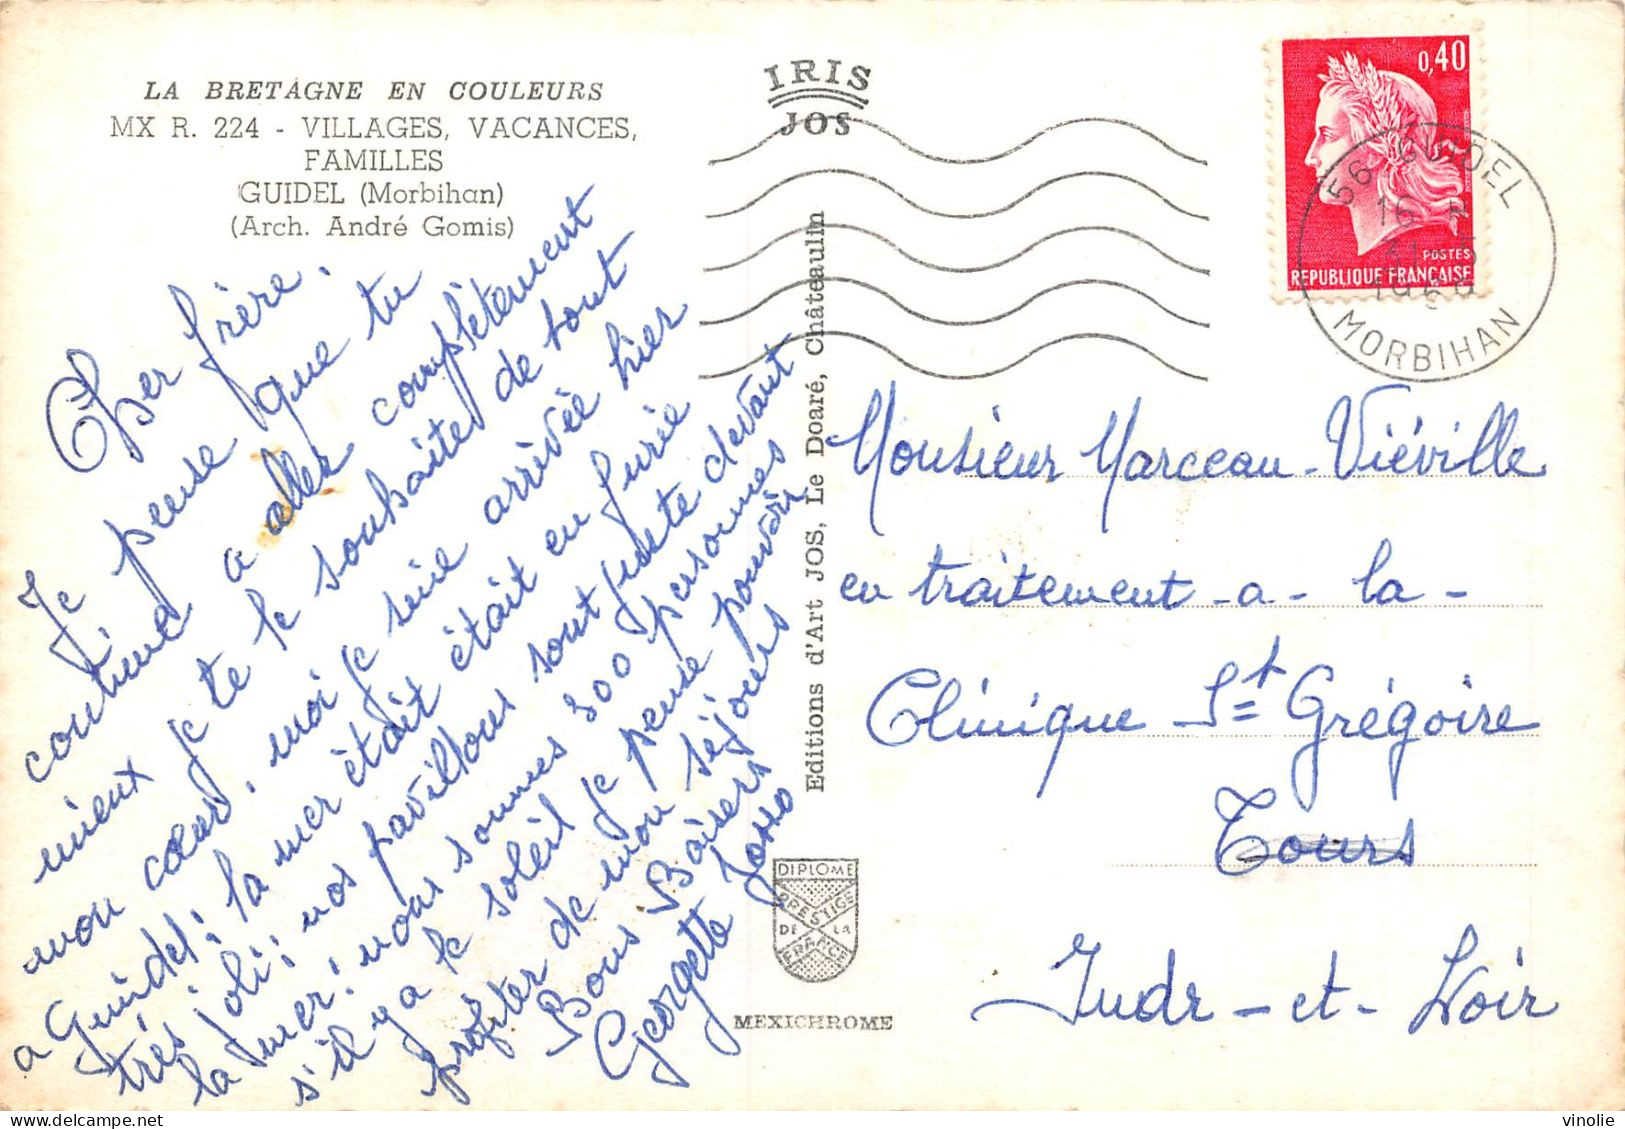 LA BRETAGNE EN COULEURS
MX R. 224 - VILLAGES, VACANCES,
FAMILLES
GUIDEL (Morbihan)
(Arch. André Gomis)
IRIS
JOS
0,40
POSTES
REPUBLIQUE FRANÇAISE
56 GUIDEL
16 H
MORBIHAN
Cher frère.
Je pense que tu
continue a aller complètement
mieux je te le souhaite de tout
mon cœur, moi je suie arrivée hier
a Guidel; la mer était était en furie
très joli; nos pavillons sont juste devant
la mer; nous sommes 300 personnes
s'il y a le soleil je pense pouvoir
profiter de mon séjours
Bons Baisers
Georgette Josso
Editions d'Art JOS, Le Doaré, Châteaulin
DIPLOME
PRESTIGE
DE LA
FRANCE
MEXICHROME
Monsieur Marceau-Viéville
en traitement-a-la-
Clinique St Grégoire
Tours
Indr-et-Loir
vinolie